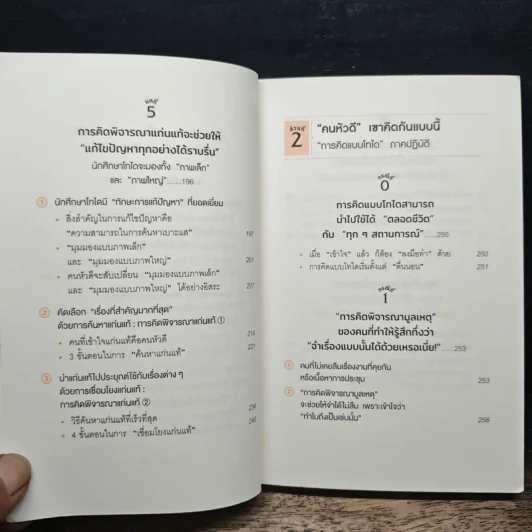 บทที่
5
การคิดพิจารณาแก่นแท้จะช่วยให้
"แก้ไขปัญหาทุกอย่างได้ราบรื่น"
นักศึกษาโทไดจะมองทั้ง "ภาพเล็ก"
และ "ภาพใหญ่"......196
① นักศึกษาโทไดมี "ทักษะการแก้ปัญหา" ที่ยอดเยี่ยม
• สิ่งสำคัญในการแก้ไขปัญหาคือ
"ความสามารถในการค้นหาเบาะแส" 197
• "มุมมองแบบภาพเล็ก"
และ "มุมมองแบบภาพใหญ่" 201
• คนหัวดีจะสับเปลี่ยน "มุมมองแบบภาพเล็ก"
และ "มุมมองแบบภาพใหญ่" ได้อย่างอิสระ 207
② คัดเลือก "เรื่องที่สำคัญมากที่สุด"
ด้วยการค้นหาแก่นแท้ : การคิดพิจารณาแก่นแท้ ①
• คนที่เข้าใจแก่นแท้คือคนหัวดี 214
• 3 ขั้นตอนในการ "ค้นหาแก่นแท้" 221
③ นำแก่นแท้ไปประยุกต์ใช้กับเรื่องต่าง ๆ
ด้วยการเชื่อมโยงแก่นแท้ :
การคิดพิจารณาแก่นแท้ ②
• วิธีค้นหาแก่นแท้ที่เร็วที่สุด 234
• 4 ขั้นตอนในการ "เชื่อมโยงแก่นแท้" 240
ส่วนที่
2
"คนหัวดี" เขาคิดกันแบบนี้
"การคิดแบบโทได" ภาคปฏิบัติ
0
การคิดแบบโทไดสามารถ
นำไปใช้ได้ "ตลอดชีวิต"
กับ "ทุก ๆ สถานการณ์"......250
• เมื่อ "เข้าใจ" แล้ว ก็ต้อง "ลงมือทำ" ด้วย 250
• การคิดแบบโทไดเริ่มตั้งแต่ "ตื่นนอน" 251
1
"การคิดพิจารณามูลเหตุ"
ของคนที่ทำให้รู้สึกทึ่งว่า
"จำเรื่องแบบนั้นได้ด้วยเหรอเนี่ย!"......253
① คนที่ไม่เคยลืมเรื่องงานที่คุยกัน
หรือเนื้อหาการประชุม 253
② "การคิดพิจารณามูลเหตุ"
จะช่วยให้จำได้ไม่ลืม เพราะเข้าใจว่า
"ทำไมถึงเป็นเช่นนั้น" 256